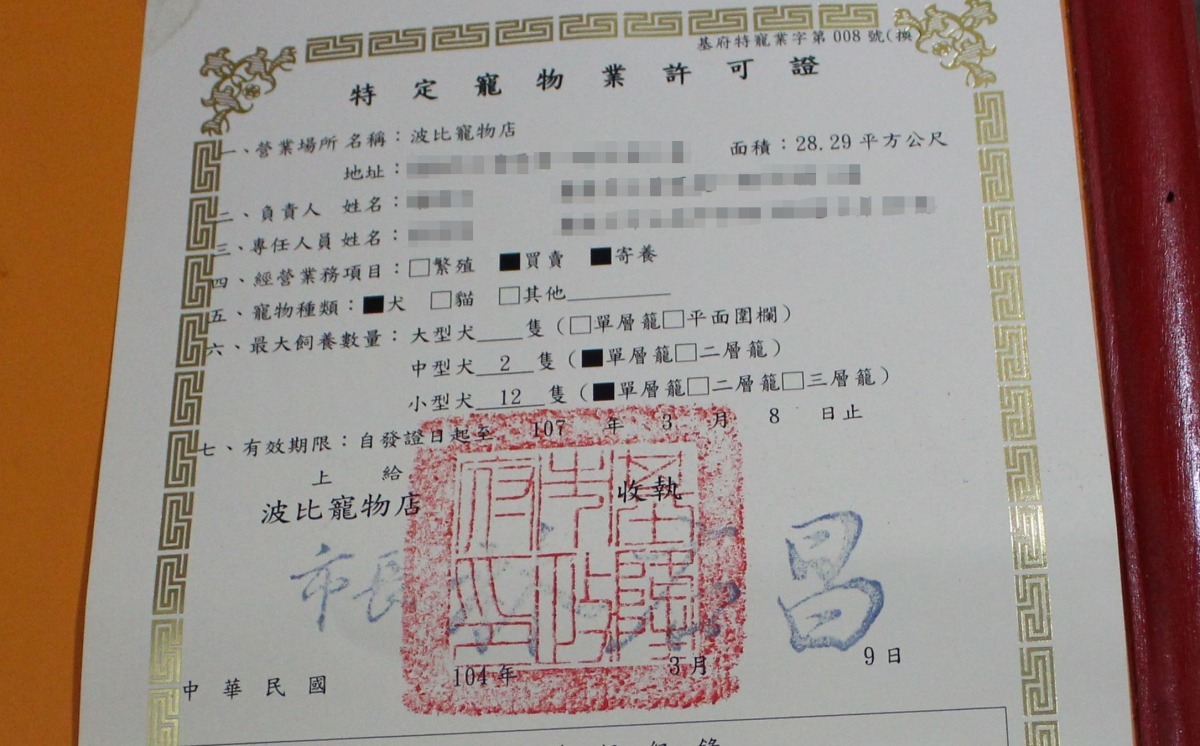 基府特寵業字第008號(換
特定寵物業許可證
一、營業場所 名稱：波比寵物店
地址： 面積：28.29 平方公尺
二、負責人 姓名：
三、專任人員 姓名：
四、經營業務項目：□繁殖 ■買賣 ■寄養
五、寵物種類：■犬 □貓 □其他________
六、最大飼養數量：大型犬___隻（□單層籠□平面圍欄）
中型犬 2 隻（■單層籠□二層籠）
小型犬 12 隻（■單層籠□二層籠□三層籠）
七、有效期限：自發證日起至 107 年 3 月 8 日止
上 給
波比寵物店 收執
基隆市政府印
市長 昌
中華民國 104年 3月 9日